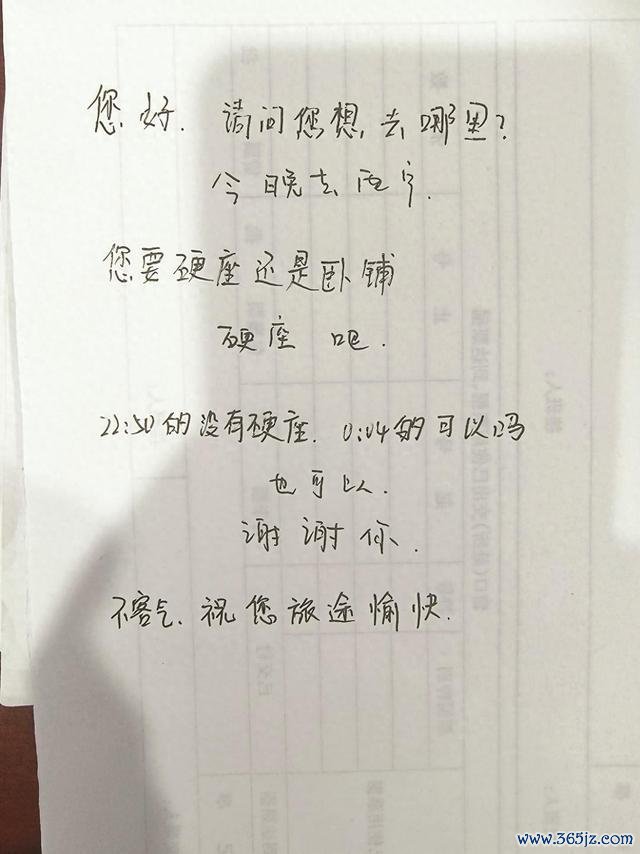 您好. 请问您想去哪里?
今晚去西宁.
您要硬座还是卧铺
硬座吧.
22:50的没有硬座. 0:04的可以吗
也可以.
谢谢你.
不客气. 祝您旅途愉快.
www.365jz.com